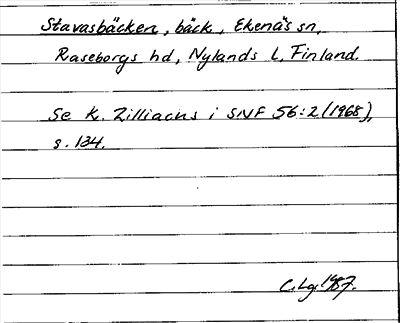 Stavasbäcken, bäck, Ekenäs sn,
Raseborgs hd, Nylands l, Finland.
Se K. Zilliacus i SNF 56:2 (1968),
s. 134.
C. Lg. 1987.